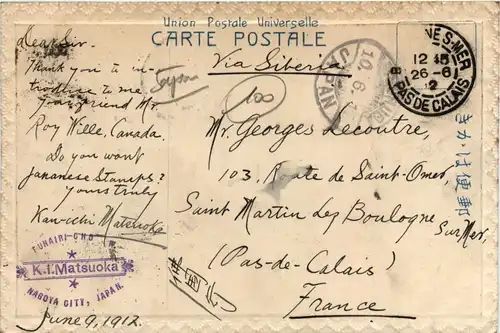 Union Postale Universelle
CARTE POSTALE
Dear Sir.
Thank you to in-
troduce to me
your friend Mr.
Roy Wille, Canada.
Do you want
Japanese Stamps?
Yours truly
Kan-ichi Matsuoka
K.I.Matsuoka
NAGOYA CITY, JAPAN.
June 9, 1912.
Via Siberia
100
JAPAN
10. 6.
12 15
26-6
PAS DE CALAIS
Mr. Georges Lecoutre,
103, Route de Saint-Omer,
Saint Martin Les Boulogne
Sur Mer,
(Pas-de-Calais)
France
きがは便郵